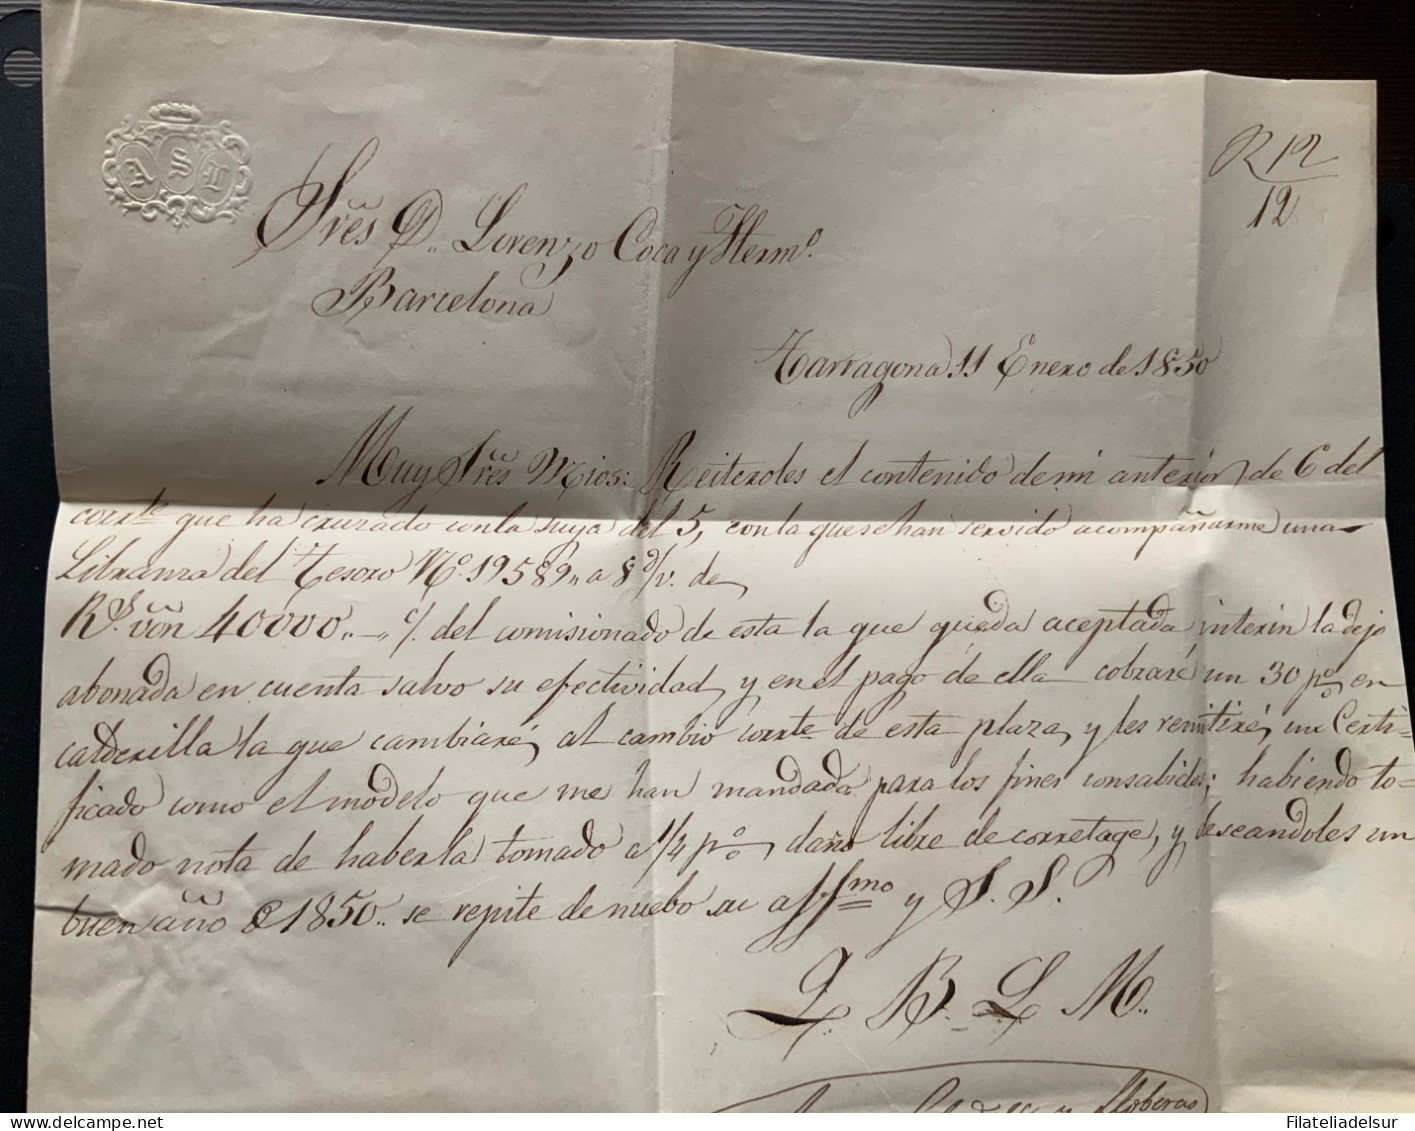 A S L
R 12
12
Sres D. Lorenzo Coca y Hermo.
Barcelona
Tarragona 11 Enero de 1850
Muy Sres Mios: Reiteroles el contenido de mi anterior de 6 del
corrte que ha cruzado con la suya del 5, con la que se han servido acompañarme una
Libranza del Tesoro No. 19589 a 8 d/v. de
Rs. von 40000.. c/. del comisionado de esta la que queda aceptada interin la dejo
abonada en cuenta salvo su efectividad, y en el pago de ella cobraré un 30 p% en
calderilla la que cambiaré al cambio corrte de esta plaza, y les remitiré un Certi-
ficado como el modelo que me han mandado para los fines consabidos; habiendo to-
mado nota de haberla tomado a 1/4 p% daño libre de corretage, y deseandoles un
buen año de 1850.. se repite de nuebo su affmo y S. S.
Q. B. L. M.
y Lloberas
Filateliadelsur